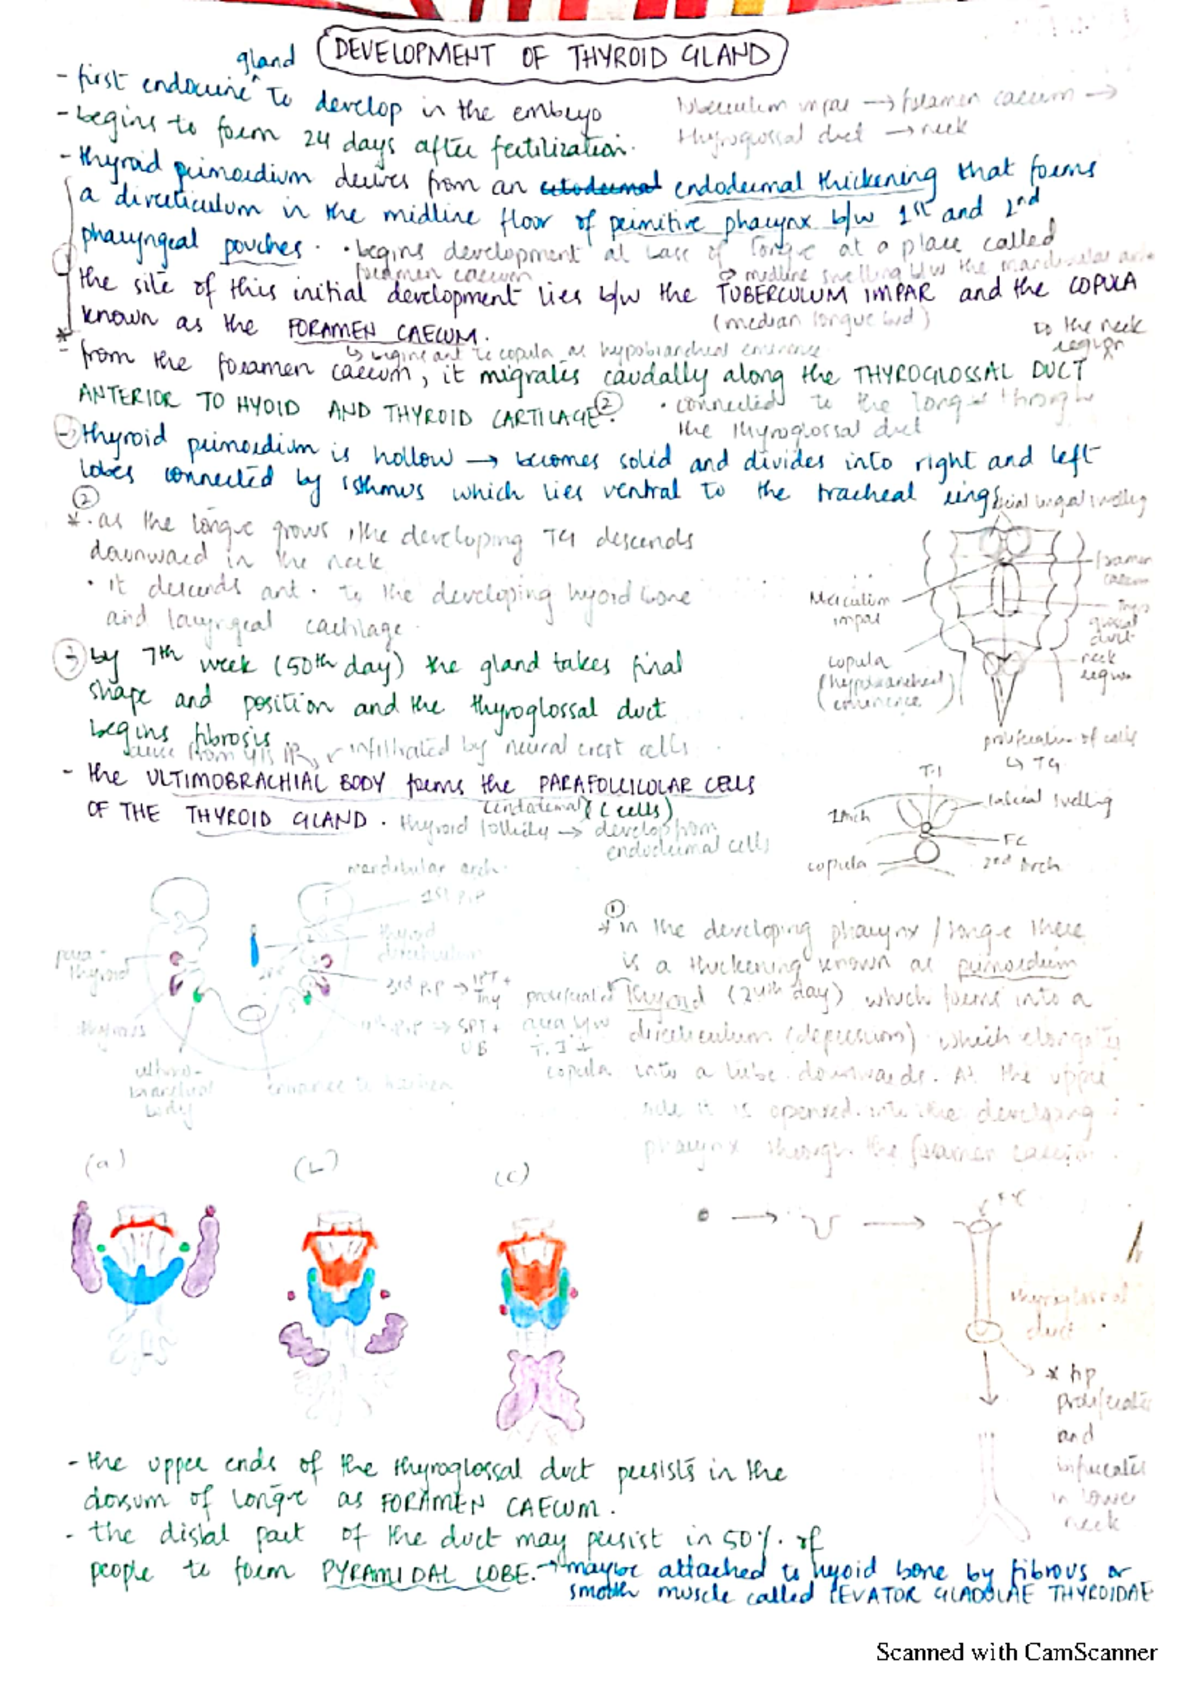 DEVELOPMENT OF THYROID GLAND
gland
- first endocrine ^ to develop in the embryo
- begins to form 24 days after fertilization.
tuberculum impar → foramen caecum →
thyroglossal duct → neck
- thyroid primordium derives from an ectodermal endodermal thickening that forms
a diverticulum in the midline floor of primitive pharynx b/w 1st and 2nd
pharyngeal pouches. • begins development at base of tongue at a place called
foramen caecum
→ midline swelling b/w the mandibular
① the site of this initial development lies b/w the TUBERCULUM IMPAR and the COPULA
known as the FORAMEN CAECUM.
(median tongue bud)
to the neck
region
* - from the foramen caecum, it migrates caudally along the THYROGLOSSAL DUCT
ANTERIOR TO HYOID AND THYROID CARTILAGE. ②
• connected to the tongue through
the thyroglossal duct
- thyroid primordium is hollow → becomes solid and divides into right and left
lobes connected by isthmus which lies ventral to the tracheal rings
②
* • as the tongue grows, the developing TG descends
downward in the neck
• it descends ant. to the developing hyoid bone
and laryngeal cartilage.
③ by 7th week (50th day) the gland takes final
shape and position and the thyroglossal duct
begins fibrosis
infiltrated by neural crest cells
- the ULTIMOBRACHIAL BODY forms the PARAFOLLICULAR CELLS
OF THE THYROID GLAND. (C cells)
thyroid follicles → develop from
endodermal cells
foramen
caecum
impar
copula
(hypobranchial
eminence)
neck
region
proliferation of cells
↳ TG
T.I
lateral swelling
1 Arch
FC
copula
2nd Arch
mandibular arch
1st P.P
thyroid
diverticulum
para-
thyroid
3rd P.P → IPT +
Thy
thymus
→ SPT +
UB
ultimo-
branchial
body
entrance to
①
* in the developing pharynx / tongue there
is a thickening known as primordium
Thyroid (24th day) which forms into a
diverticulum (depression) which elongates
into a tube downwards. At the upper
side it is opened into the developing
pharynx through the foramen caecum.
area b/w
T.I +
copula
(a)
(b)
(c)
F.C
thyroglossal
duct.
* hp
proliferates
and
bifurcates
in lower
neck
- the upper ends of the thyroglossal duct persists in the
dorsum of tongue as FORAMEN CAECUM.
- the distal part of the duct may persist in 50% of
people to form PYRAMIDAL LOBE. → maybe attached to hyoid bone by fibrous or
smooth muscle called LEVATOR GLADULAE THYROIDAE
Scanned with CamScanner